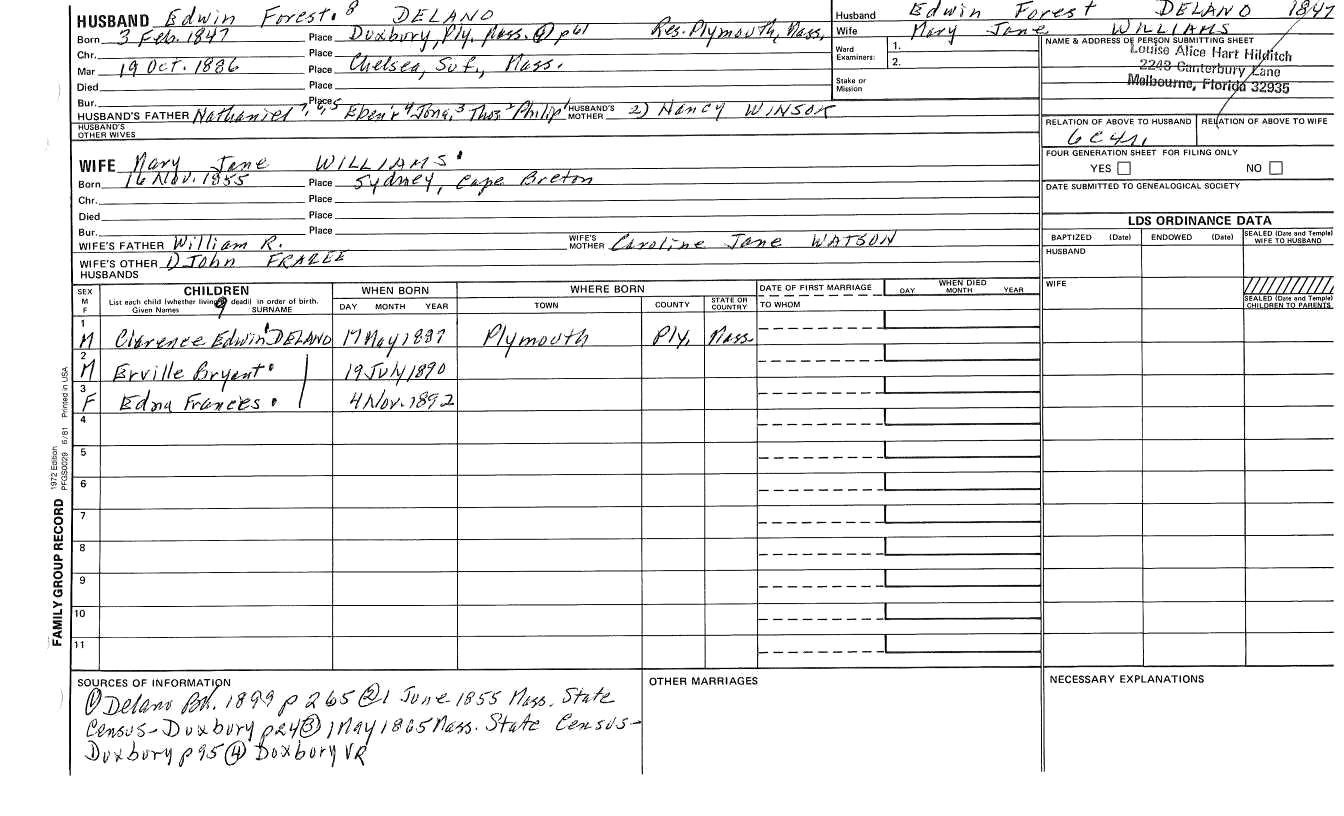 HUSBAND Edwin Forest.8 DELANO
Born 3 Feb. 1847 Place Duxbury, Ply. Mass. ④ p61 Res. Plymouth, Mass.
Chr. Place
Mar 19 Oct. 1886 Place Chelsea, Suf., Mass.
Died Place
Bur. Place
HUSBAND'S FATHER Nathaniel 7, 6, 5 Eben'r 4 Jona, 3 Thos 2 Philip 1 HUSBAND'S MOTHER 2) Nancy WINSOR
HUSBAND'S OTHER WIVES
WIFE Mary Jane WILLIAMS
Born 16 Nov. 1855 Place Sydney, Cape Breton
Chr. Place
Died Place
Bur. Place
WIFE'S FATHER William R. WIFE'S MOTHER Caroline Jane WATSON
WIFE'S OTHER HUSBANDS 1) John FRAZEE
Husband Edwin Forest DELANO 1847
Wife Mary Jane WILLIAMS
Ward Examiners: 1.
2.
Stake or Mission
NAME & ADDRESS OF PERSON SUBMITTING SHEET
Louise Alice Hart Hilditch
2243 Canterbury Lane
Melbourne, Florida 32935
RELATION OF ABOVE TO HUSBAND RELATION OF ABOVE TO WIFE
6C4r,
FOUR GENERATION SHEET FOR FILING ONLY
YES NO
DATE SUBMITTED TO GENEALOGICAL SOCIETY
LDS ORDINANCE DATA
BAPTIZED (Date) ENDOWED (Date) SEALED (Date and Temple) WIFE TO HUSBAND
HUSBAND
WIFE
SEALED (Date and Temple) CHILDREN TO PARENTS
SEX M F
CHILDREN
List each child (whether living or dead) in order of birth.
Given Names 9 SURNAME
WHEN BORN
DAY MONTH YEAR
WHERE BORN
TOWN COUNTY STATE OR COUNTRY
DATE OF FIRST MARRIAGE
TO WHOM
WHEN DIED
DAY MONTH YEAR
1 M Clarence Edwin DELANO 17 May 1887 Plymouth Ply, Mass.
2 M Erville Bryant 19 July 1890
3 F Edna Frances 4 Nov. 1892
4
5
6
7
8
9
10
11
FAMILY GROUP RECORD 1972 Edition PFGS0029 6/81 Printed in USA
SOURCES OF INFORMATION
① Delano BK. 1899 p 265 ② 1 June 1855 Mass. State
Census- Duxbury p24 ③ 1 May 1865 Mass. State Census-
Duxbury p95 ④ Duxbury VR
OTHER MARRIAGES
NECESSARY EXPLANATIONS